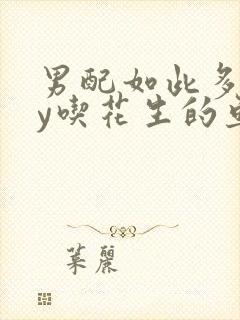 男配如此多
y喫花生的
葉麗